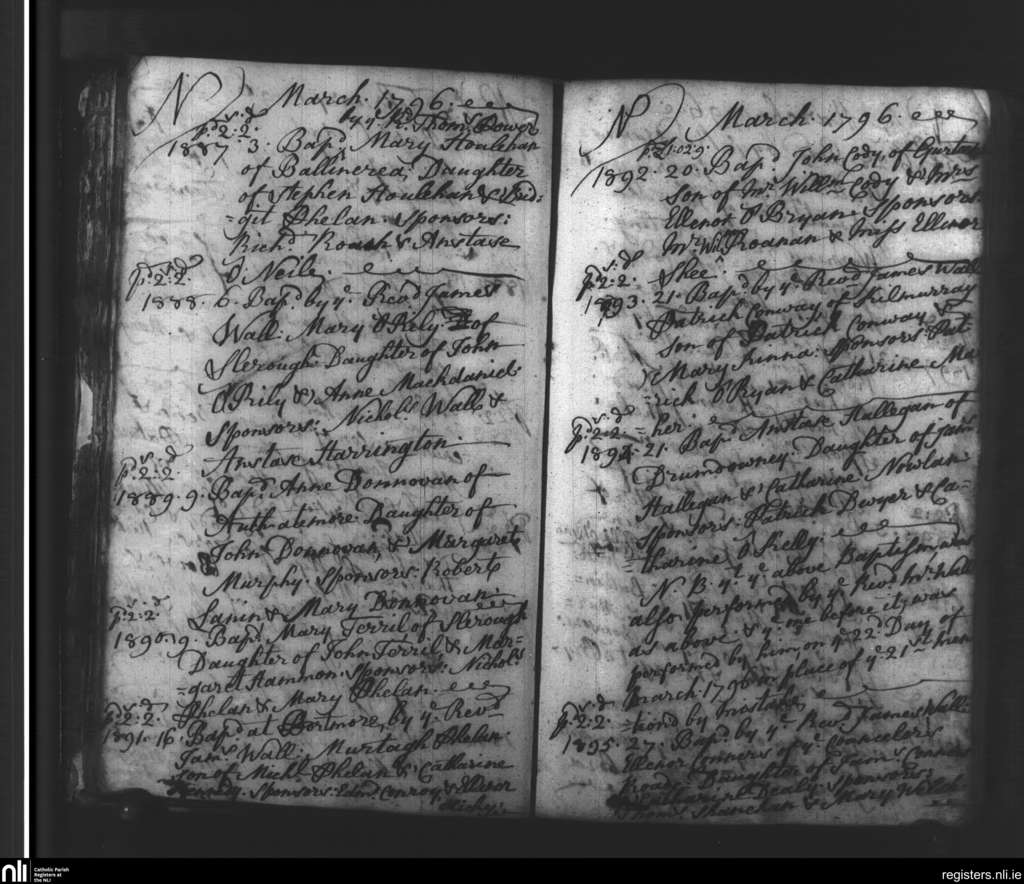 N March. 1796.
by ye Rd. Thoms. Power
p.d 2:2.
1887. 3. Bapd. Mary Houlehan
of Ballinerea. Daughter
of Stephen Houlehan & Brid=
=git Phelan. Sponsors:
Richd. Roach & Anstase
O Neile.
p.d 2:2.
1888. 6. Bapd. by ye. Revd. James
Wall. Mary O Rily of
Slerough Daughter of John
O Rily & Anne Machdaniel
Sponsors: Nichols. Wall &
Anstase Harrington.
p.d 2:2
1889. 9. Bapd. Anne Donnovan of
Daughter of
John Donnovan & Margaret
Murphy. Sponsors: Robert
& Mary Donnovan.
p.d 2:2.
1890. 9. Bapd. Mary Terril of Slerough
Daughter of John Terril & Mar=
=garet Hammon. Sponsors: Nichols.
Phelan & Mary Phelan.
p.d 2:2.
1891. 16. Bapd. at Portmore, by ye. Revd.
Jams. Wall. Murtagh Phelan.
son of Michl. Phelan & Catharine
Sponsors: Edmd. Conroy & Ellenor
N March. 1796.
1892. 20. Bapd. John Cody of
son of Mr. Willm. Cody & Mrs
Ellenor O Bryan. Sponsors.
Mr. Willm. Roanan & Miss Ellenor
Shee.
p.d 2:2.
1893. 21. Bapd. by ye. Revd. James Wall
Patrick Conway of Kilmurray
son of Patrick Conway &
Mary Kinna. Sponsors: Pat=
=rick O Ryan & Catharine Ma=
=her
p.d 2:2.
1894. 21. Bapd. Anstase Hallegan of
Drumdowney. Daughter of Jams.
Hallegan & Catharine Nowlan
Sponsors: Patrick Dwyer & Ca=
=tharine O Kelly.
N. B. yt. ye. above Baptism was
also performed by ye. Revd. Mr. Wall
as above. & ye. one before it was
performed by him on ye. 22d. Day of
March. 1796. in place of ye. 21st. men=
=tiond by mistake.
p.d 2:2.
1895. 27. Bapd. by ye. Revd. James Wall.
Ellenor Conners of ye. Chancelers
Road. Daughter of Jams. Conners
& Catharine Healy. Sponsors:
Thoms. Shanehan & Mary Welsh
nli Catholic Parish
Registers at
the NLI
registers.nli.ie